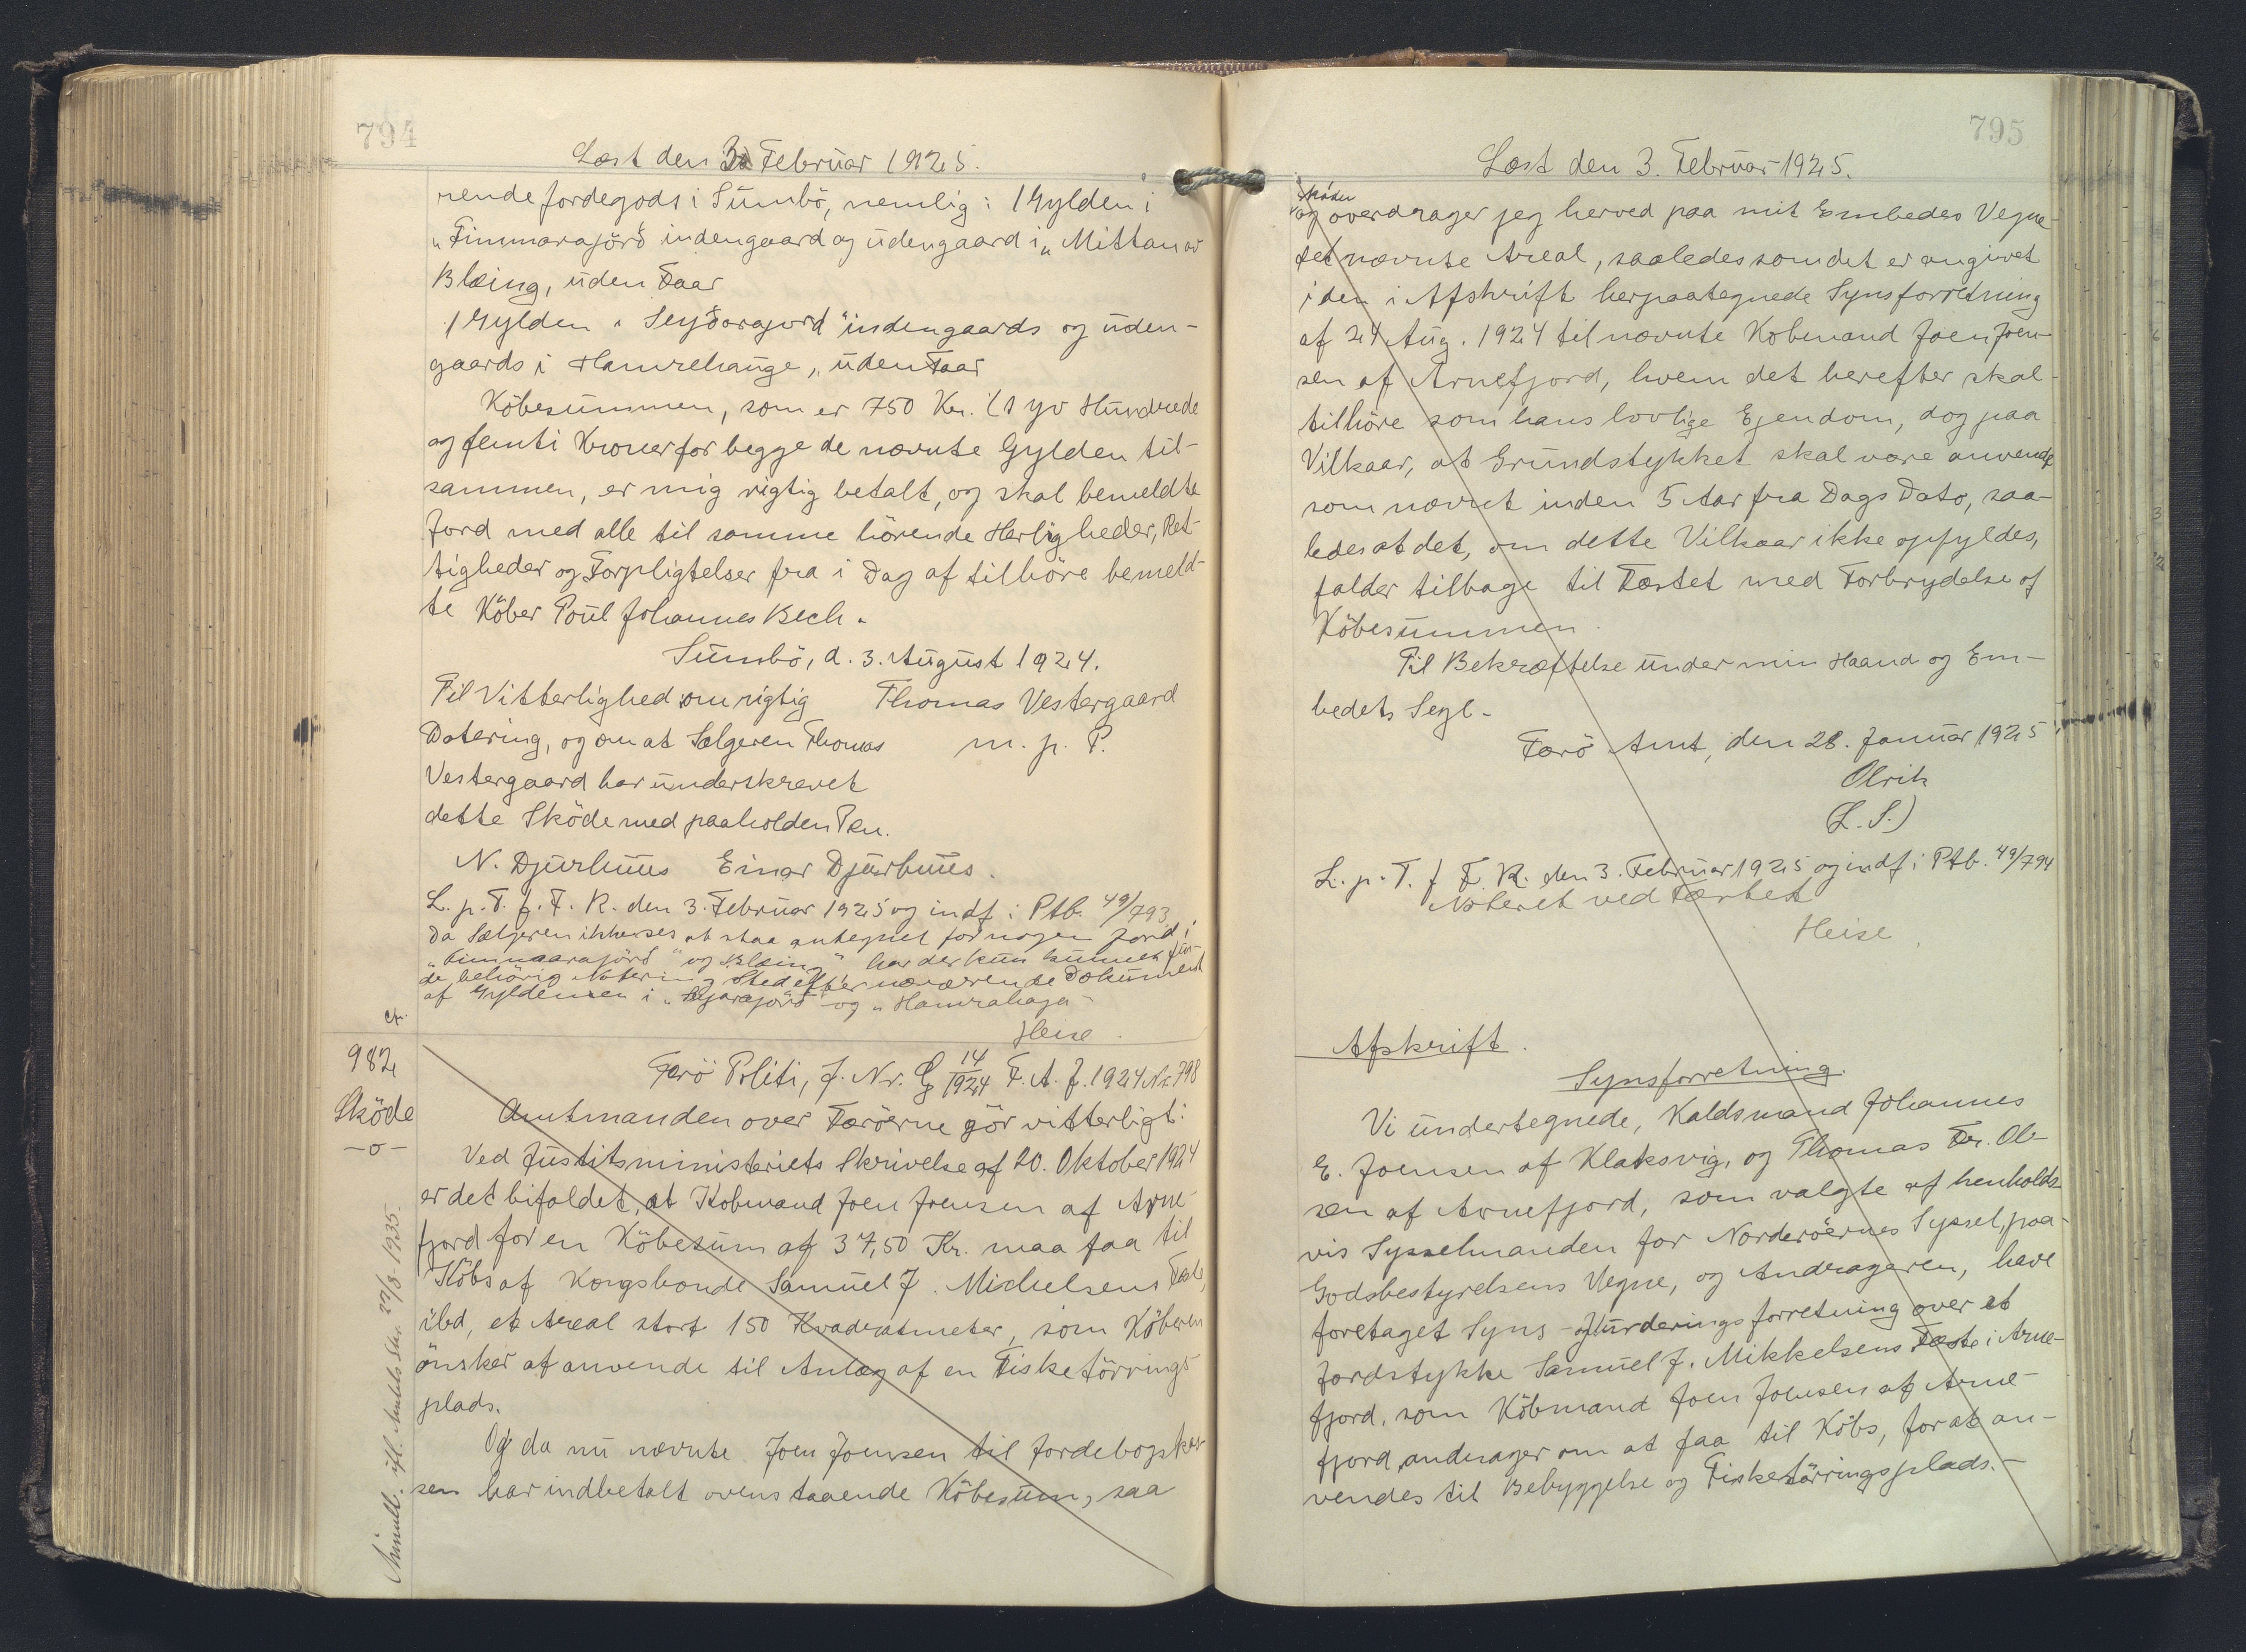 794
Læst den 3. Februar 1925.
rende Jordegods i Sumbö, nemlig: 1 Gylden i
„Timmarajörð indengaard og udengaard i „Mittan or
Blæing, uden Faar
1 Gylden „Seyðarajord" indengaards og uden-
gaards i Hamrehauge, „uden Faar
Köbesummen, som er 750 Kr. (syv Hundrede
og femti Kroner for begge de nævnte Gylden til-
sammen, er mig rigtig betalt, og skal bemeldte
Jord med alle til samme hörende Herligheder, Ret-
tigheder og Forpligtelser fra i Dag af tilhöre bemeld-
te Köber Poul Johannes Bech.
Sumbö, d. 3. August 1924.
Til Vitterlighed om rigtig Thomas Vestergaard
Datering, og om at Sælgeren Thomas m. p. P.
Vestergaard har underskrevet
dette Sköde med paaholden Pen.
N. Djurhuus Einar Djurhuus.
L. p. T. f. F. R. den 3. Februar 1925 og indf. i Ptb. 49/793
Da Sælgeren ikke ses at staa antegnet for nogen Jord i
„Timmarajörð" og „Blæing" har der kun kunnet fin-
de behörig Notering Sted efter nærværende Dokument
af Gyldenen i og „Hamrahaga"
Heise.
982
Sköde
-o-
Annull. ifl. Amtets Skr. 22/8-1935.
Færö Politi, J. Nr. G 14/1924 F. A. J. 1924 Nr. 798
Amtmanden over Færöerne gör vitterligt:
Ved Justitsministeriets Skrivelse af 20. Oktober 1924
er det bifaldet, at Kobmand Joen Joensen af Arne-
fjord for en Köbesum af 37,50 Kr. maa faa til
Köbs af Kongsbonde Samuel J. Michelsens Fæste,
ibd, et Areal stort 150 Kvadratmeter, som Köberen
önsker at anvende til Anlæg af en Fisketörrings-
plads.
Og da nu nævnte Joen Joensen til Jordebogskas-
sen har indbetalt ovenstaaende Köbesum, saa
795
Læst den 3. Februar 1925.
sköder
og overdrager jeg herved paa mit Embedes Vegne
det nævnte Areal, saaledes som det er angivet
i den i Afskrift herpaategnede Synsforretning
af 24 Aug. 1924 til nævnte Kobmand Joen Joen-
sen af Arnefjord, hvem det herefter skal
tilhöre som hans lovlige Ejendom, dog paa
Vilkaar, at Grundstykket skal være anvendt
som nævnt inden 5 Aar fra Dags Dato, saa-
ledes at det, om dette Vilkaar ikke opfyldes,
falder tilbage til Fæstet med Forbrydelse af
Köbesummen.
Til Bekræftelse under min Haand og Em-
bedets Segl.
Færö Amt, den 28. Januar 1925
Olrik
(L. S.)
L. p. T. f F. R. den 3. Februar 1925 og indf. i Ptb. 49/794
Noteret ved Fæstet
Heise
Afskrift.
Synsforretning.
Vi undertegnede, Kaldsmand Johannes
E. Joensen af Klaksvig, og Thomas Fr. Ol-
sen af Arnefjord, som valgte af henholds-
vis Sysselmanden for Norderöernes Syssel, paa
Godsbestyrelsens Vegne, og Andrageren, have
foretaget Syns- og Vurderingsforretning over et
Jordstykke Samuel J. Mikkelsens Fæste i Arne-
fjord, som Köbmand Joen Joensen af Arne-
fjord andrager om at faa til Köbs, for at an-
vendes til Bebyggelse og Fisketörringsplads.-